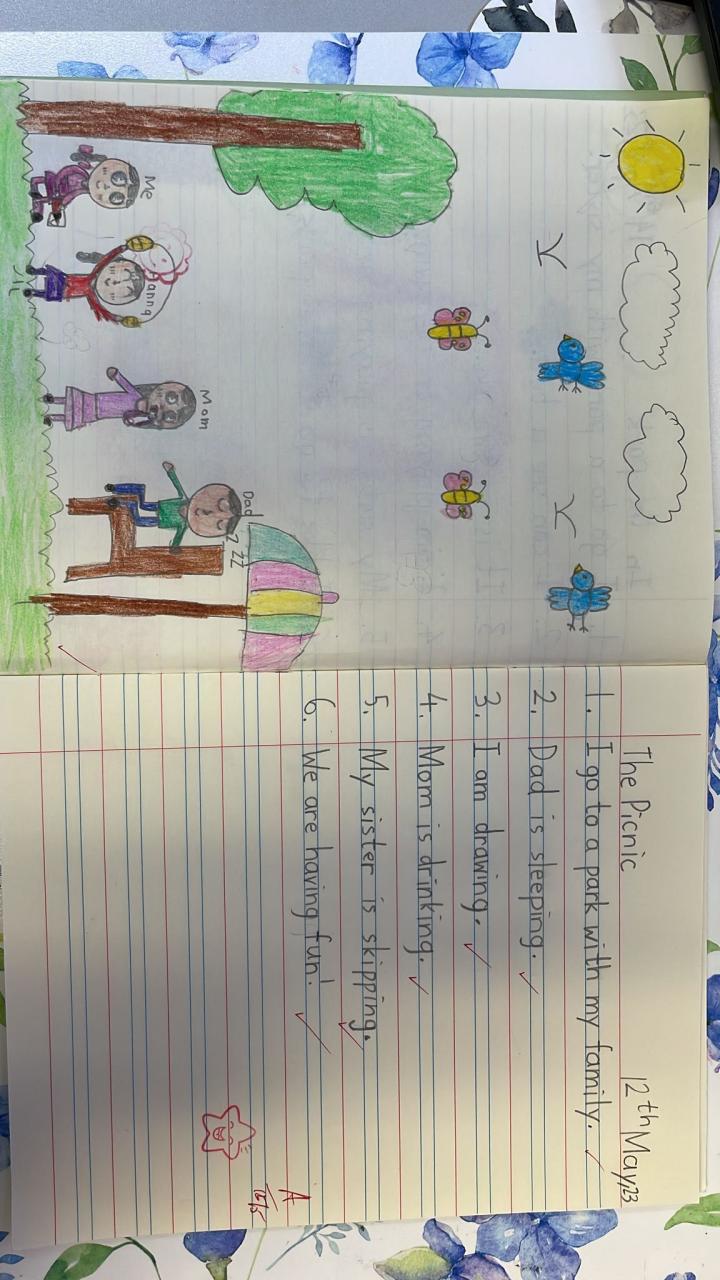 Me
Mom
Dad
ZZZ
The Picnic
12th May,23
1. I go to a park with my family.
2. Dad is sleeping.
3. I am drawing.
4. Mom is drinking.
5. My sister is skipping.
6. We are having fun!
A